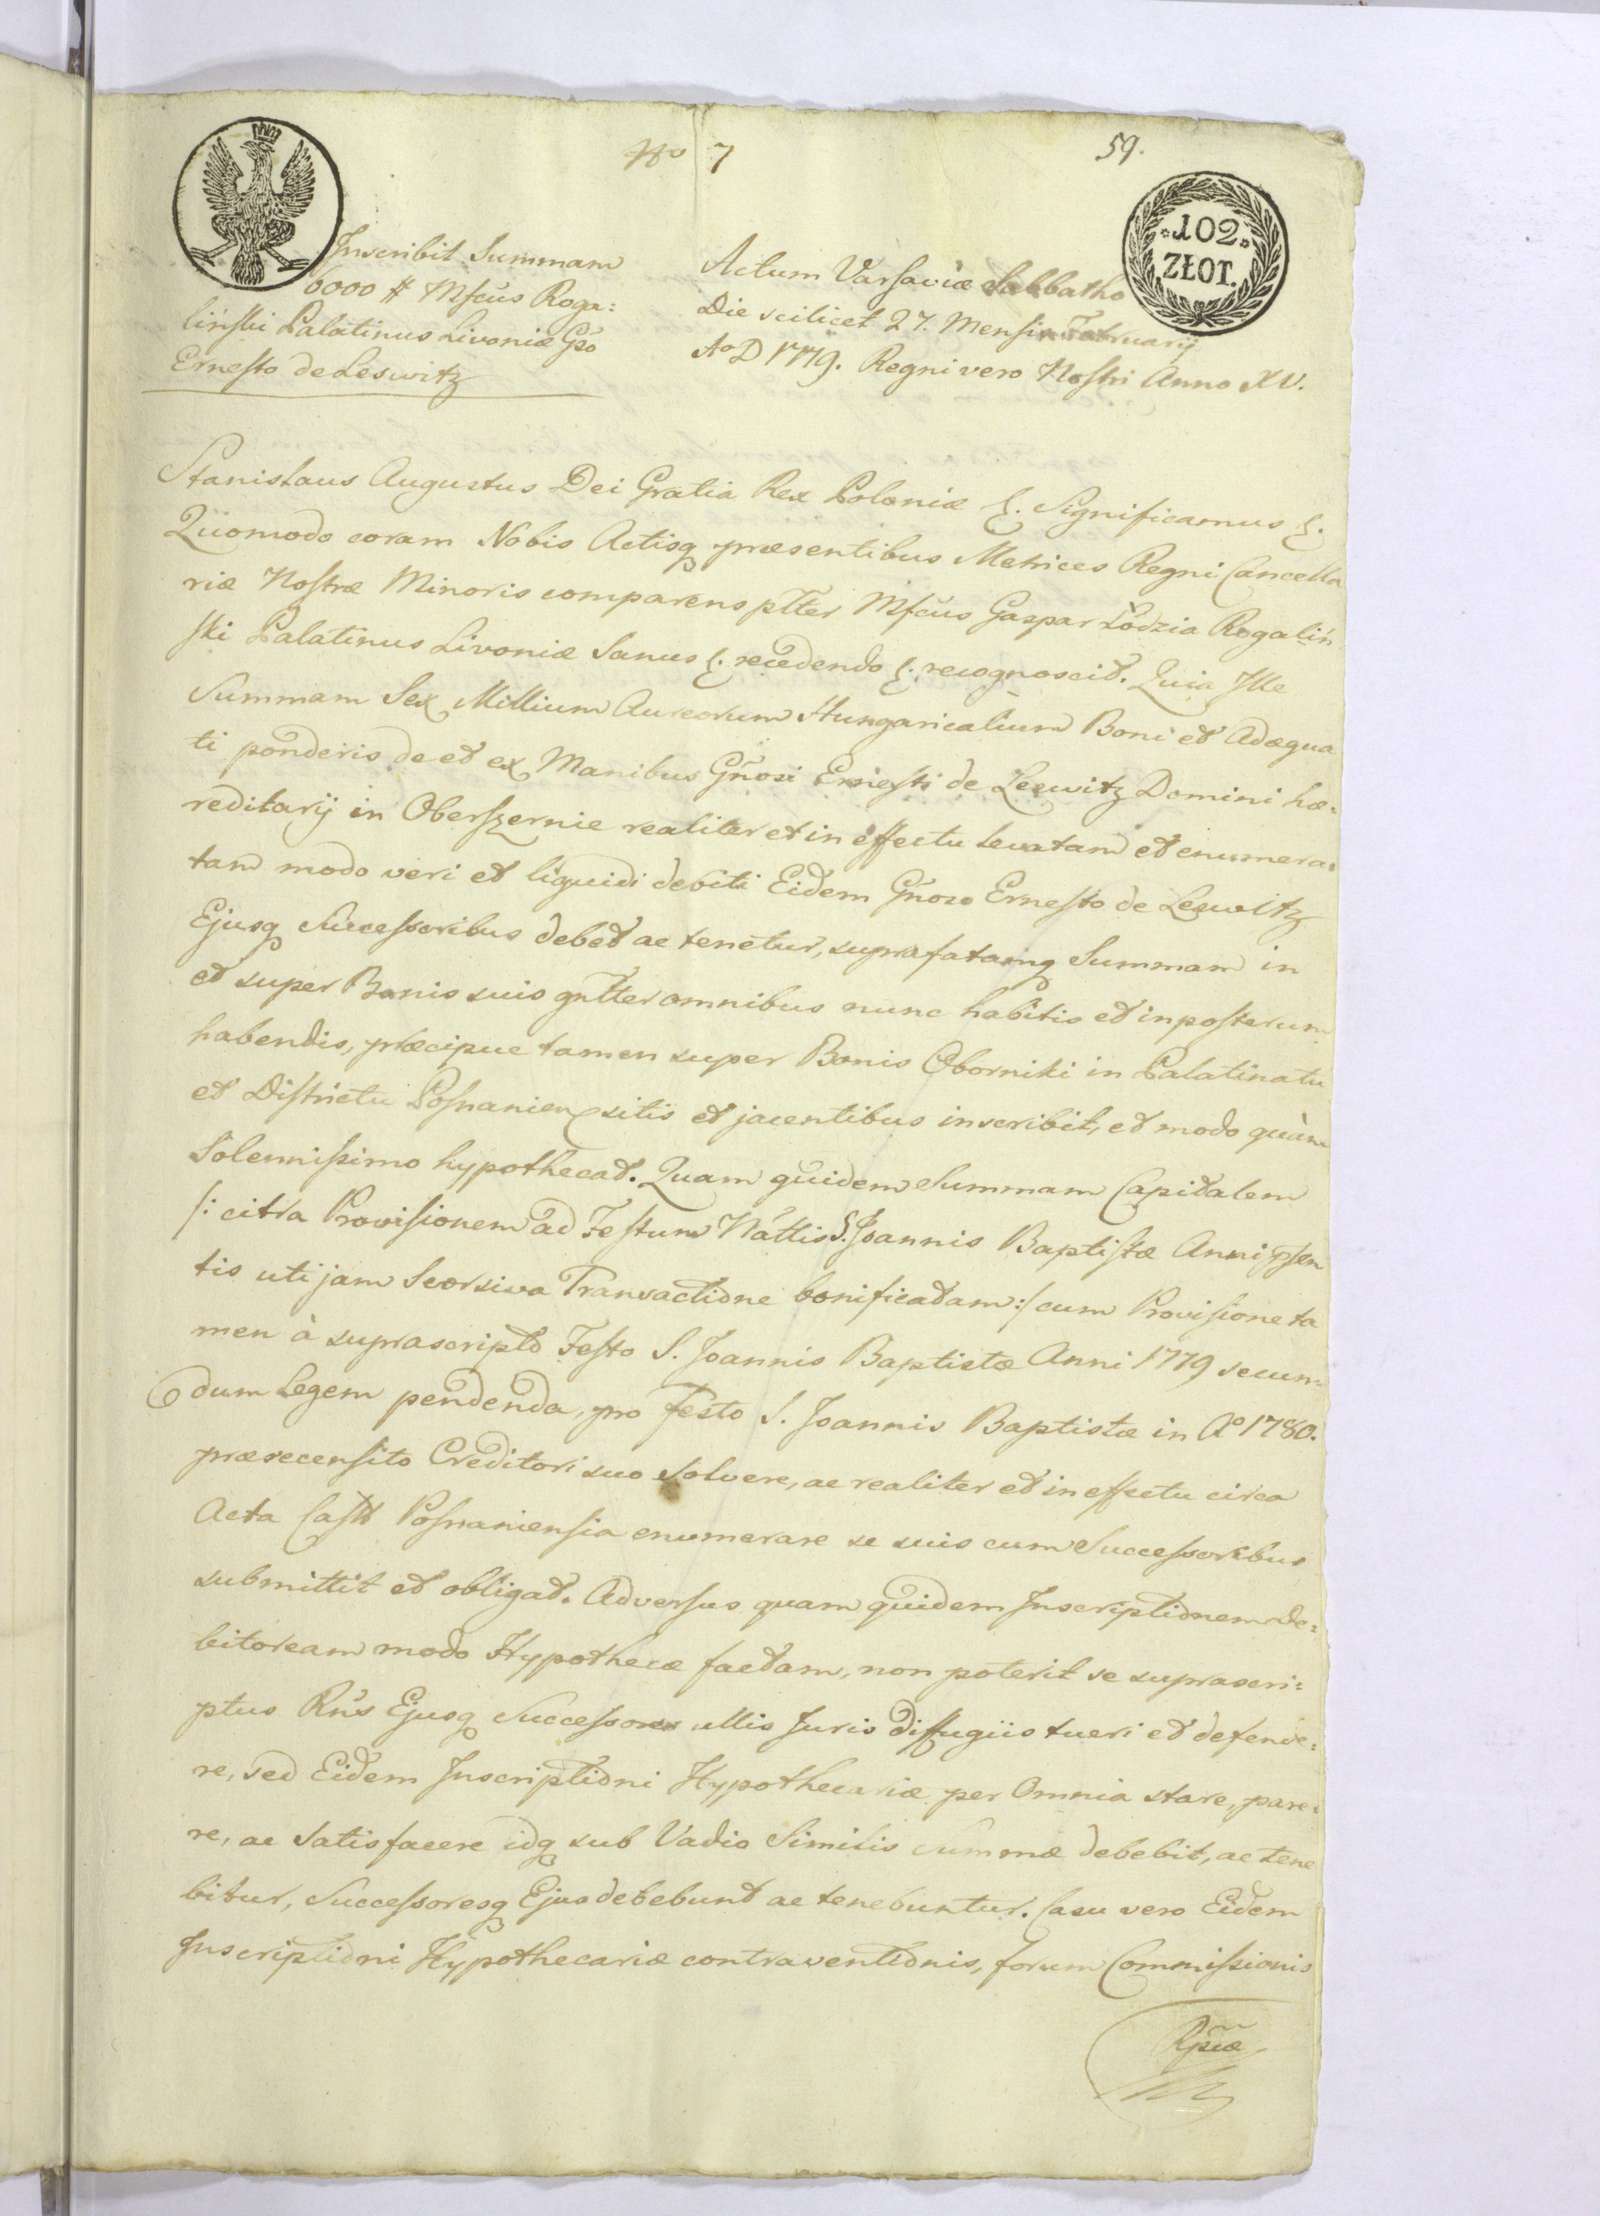 No 7
59.
102.
ZŁOT.
Inscribit Summam
6000 # Mfcus Roga:
liński Palatinus Livoniæ Gso
Ernesto de Leswitz
Actum Varsaviæ Sabbatho
Die scilicet 27. Mensis Februarij
AoD 1779. Regni vero Nostri Anno XV.
Stanislaus Augustus Dei Gratia Rex Poloniæ &. Significamus &.
Quomodo coram Nobis Actisq præsentibus Metrices Regni Cancella
riæ Nostræ Minoris comparens plter Mfcus Gaspar Łódzia Rogaliń
ski Palatinus Livoniæ Sanus &. recedendo &. recognoscit. Quia Ille
Summam Sex Millium Aureorum Hungaricalium Boni et Adæqua
ti ponderis de et ex Manibus Gnosi Ernesti de Leswitz Domini hæ:
reditarij in Oberszernie realiter et in effectu levatam et enumera:
tam modo veri et liquidi debiti Eidem Gnoso Ernesto de Leswitz
Ejusq Successoribus debet ac tenetur, suprafatamq Summam in
et super Bonis suis gnlter omnibus nunc habitis et inposterum
habendis, præcipue tamen super Bonis Oborniki in Palatinatu
et Districtu Posnanien sitis et jacentibus inscribit, et modo quàm
Solennissimo hypothecat. Quam quidem Summam Capitalem
/: citra Provisionem ad Festum Nattis S. Joannis Baptistæ Anni psen
tis uti jam Seorsiva Transactione bonificatam :/ cum Provisione ta
men à suprascripto Festo S. Joannis Baptistæ Anni 1779 secun:
dum Legem pendenda, pro festo S. Joannis Baptistæ in Ao 1780.
præsecensito Creditori suo Solvere, ac realiter et in effectu circa
Acta Castr Posnaniensia enumerare se suis cum Successoribus
submittit et obligat. Adversus quam quidem Inscriptionem de:
bitoream modo Hypothecæ factam, non poterit se suprascri:
ptus Rns Ejusq Successores ullis Juris diffugiis tueri et defende:
re, sed Eidem Inscriptioni Hypothecariæ per Omnia stare, pare:
re, ac Satisfacere idq sub Vadio Similis summæ debebit, ac tene
bitur, Successoresq Ejus debebunt ac tenebuntur. Casu vero Eidem
Inscriptioni Hypothecariæ contraventionis, forum Commissionis
Rpcæ